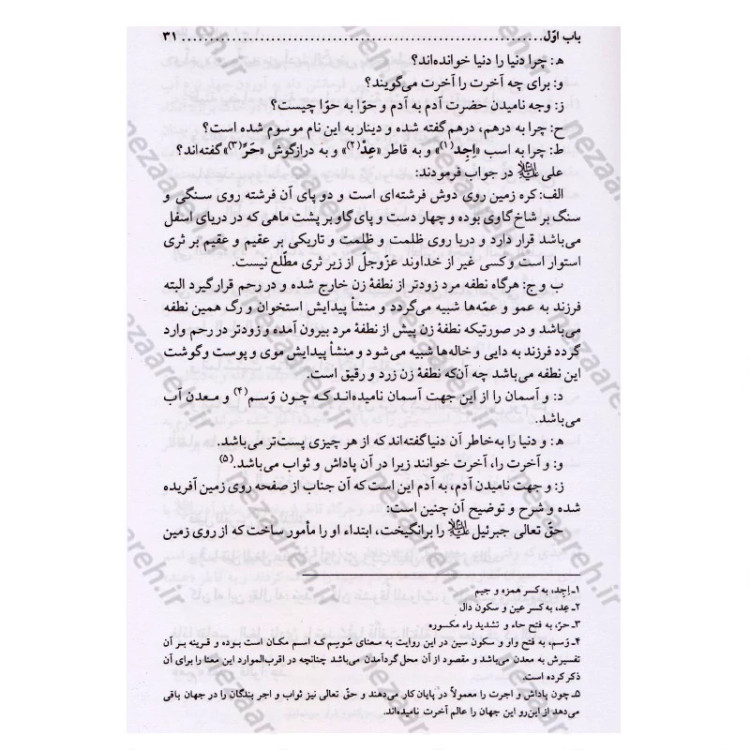 باب اوّل ................................................ ۳۱
ه‍: چرا دنیا را دنیا خوانده‌اند؟
و: برای چه آخرت را آخرت می‌گویند؟
ز: وجه نامیدن حضرت آدم به آدم و حوّا به حوّا چیست؟
ح: چرا به درهم، درهم گفته شده و دینار به این نام موسوم شده است؟
ط: چرا به اسب «اِجِد(۱)» و به قاطر «عِدْ(۲)» و به درازگوش «حَرّ(۳)» گفته‌اند؟
علی علیه‌السلام در جواب فرمودند:
الف: کره زمین روی دوش فرشته‌ای است و دو پای آن فرشته روی سنگی و
سنگ بر شاخ گاوی بوده و چهار دست و پای گاو بر پشت ماهی که در دریای اسفل
می‌باشد قرار دارد و دریا روی ظلمت و ظلمت و تاریکی بر عقیم و عقیم بر ثری
استوار است و کسی غیر از خداوند عزّوجلّ از زیر ثری مطّلع نیست.
ب و ج: هرگاه نطفه مرد زودتر از نطفهٔ زن خارج شده و در رحم قرار گیرد البته
فرزند به عمو و عمّه‌ها شبیه می‌گردد و منشأ پیدایش استخوان و رگ همین نطفه
می‌باشد و در صورتیکه نطفهٔ زن پیش از نطفهٔ مرد بیرون آمده و زودتر در رحم وارد
گردد فرزند به دایی و خاله‌ها شبیه می‌شود و منشأ پیدایش موی و پوست و گوشت
این نطفه می‌باشد چه آن‌که نطفهٔ زن زرد و رقیق است.
د: و آسمان را از این جهت آسمان نامیده‌اند که چون وَسم(۴) و معدن آب
می‌باشد.
ه‍: و دنیا را به‌خاطر آن دنیا گفته‌اند که از هر چیزی پست‌تر می‌باشد.
و: و آخرت را، آخرت خوانند زیرا در آن پاداش و ثواب می‌باشد.(۵)
ز: و جهت نامیدن آدم، به آدم این است که آن جناب از صفحه روی زمین آفریده
شده و شرح و توضیح آن چنین است:
حقّ تعالی جبرئیل علیه‌السلام را برانگیخت، ابتداء او را مأمور ساخت که از روی زمین
۱ـ اِجِد، به کسر همزه و جیم
۲ـ عِد، به کسر عین و سکون دال
۳ـ حرّ، به فتح حاء و تشدید راء مکسوره
۴ـ وَسم، به فتح واو و سکون سین در این روایت به معنای شویم که اسم مکان است بوده و قرینه بر آن
تفسیرش به معدن می‌باشد و مقصود از آن محل گردآمدن می‌باشد چنانچه در اقرب‌الموارد این معنا را برای آن
ذکر کرده است.
۵ـ چون پاداش و اجرت را معمولاً در پایان کار می‌دهند و حقّ تعالی نیز ثواب و اجر بندگان را در جهان باقی
می‌دهد از این‌رو این جهان را عالم آخرت نامیده‌اند.
nezaareh.ir